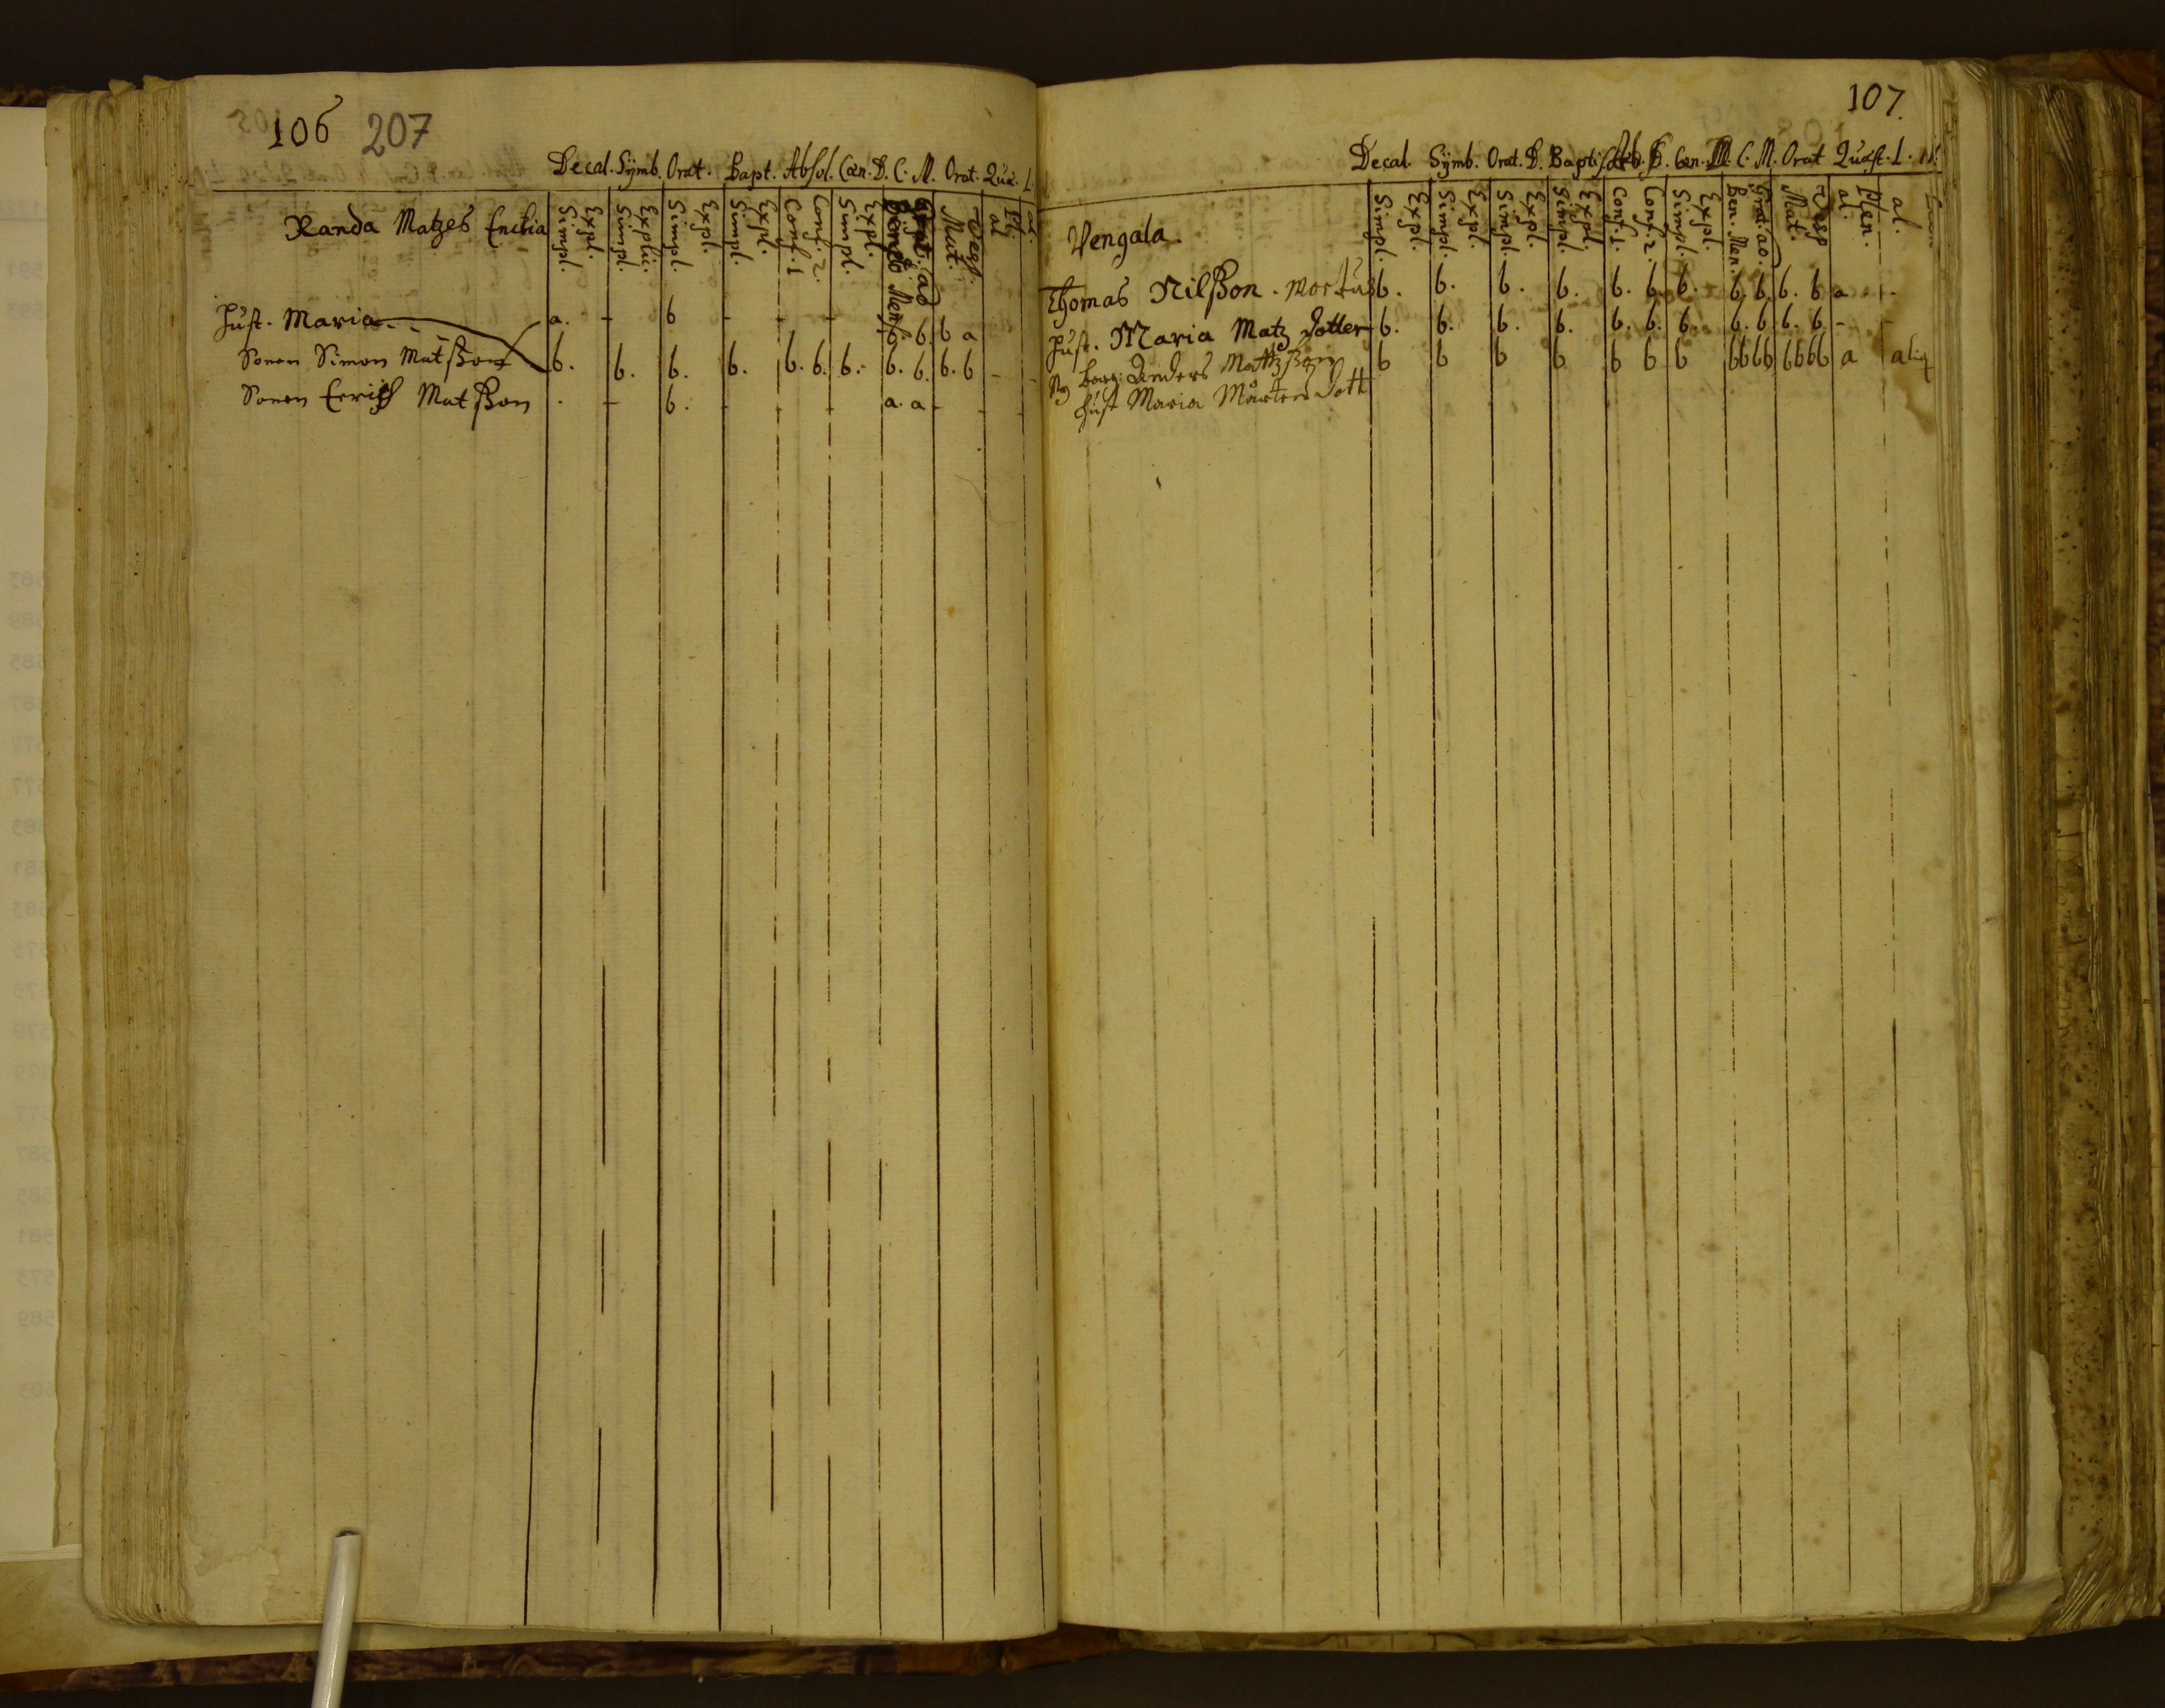 106 207
Decal. Symb. Orat. Bapt. Absol. Cœn. D. C. M. Orat. Quæ. L.
Simpl. Expl. Simpl. Explic. Simpl. Expl. Simpl. Expl. Conf. 1 Conf. 2. Simpl. Expl. Mat. Vesp. al
Randa Matzes Enckia
Hust. Maria a. - 6 - - - 6. 6. 6 a
Sonen Simon Matßon 6. 6. 6. 6. 6. 6. 6. 6. 6. 6. 6 -
Sonen Erich Matßon - - 6. - - - a. a - - -
107.
Decal. Symb. Orat. D. Bapti. Cœn. C. M. Orat Quæst. L.
Simpl. Expl. Simpl. Expl. Simpl. Expl. Simpl. Expl. Conf. 1. Conf. 2. Simpl. Expl. Ben. Men. Grat. ac. Mat. Vesp al. Plen. al.
Vengala
Thomas Nilßon. Mortuus 6. 6. 6. 6. 6. 6. 6. 6. 6. 6. 6 a - -
Hust. Maria Matz dotter 6. 6. 6. 6. 6. 6. 6. 6. 6. 6. 6 - -
Anders Mattzßon 6 6 6 6 6 6 6 6666 6666 a aliq
Hust Maria Mårtens dott